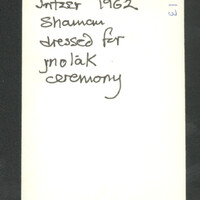 1962
Shaman
dressed for
molák
ceremony
13